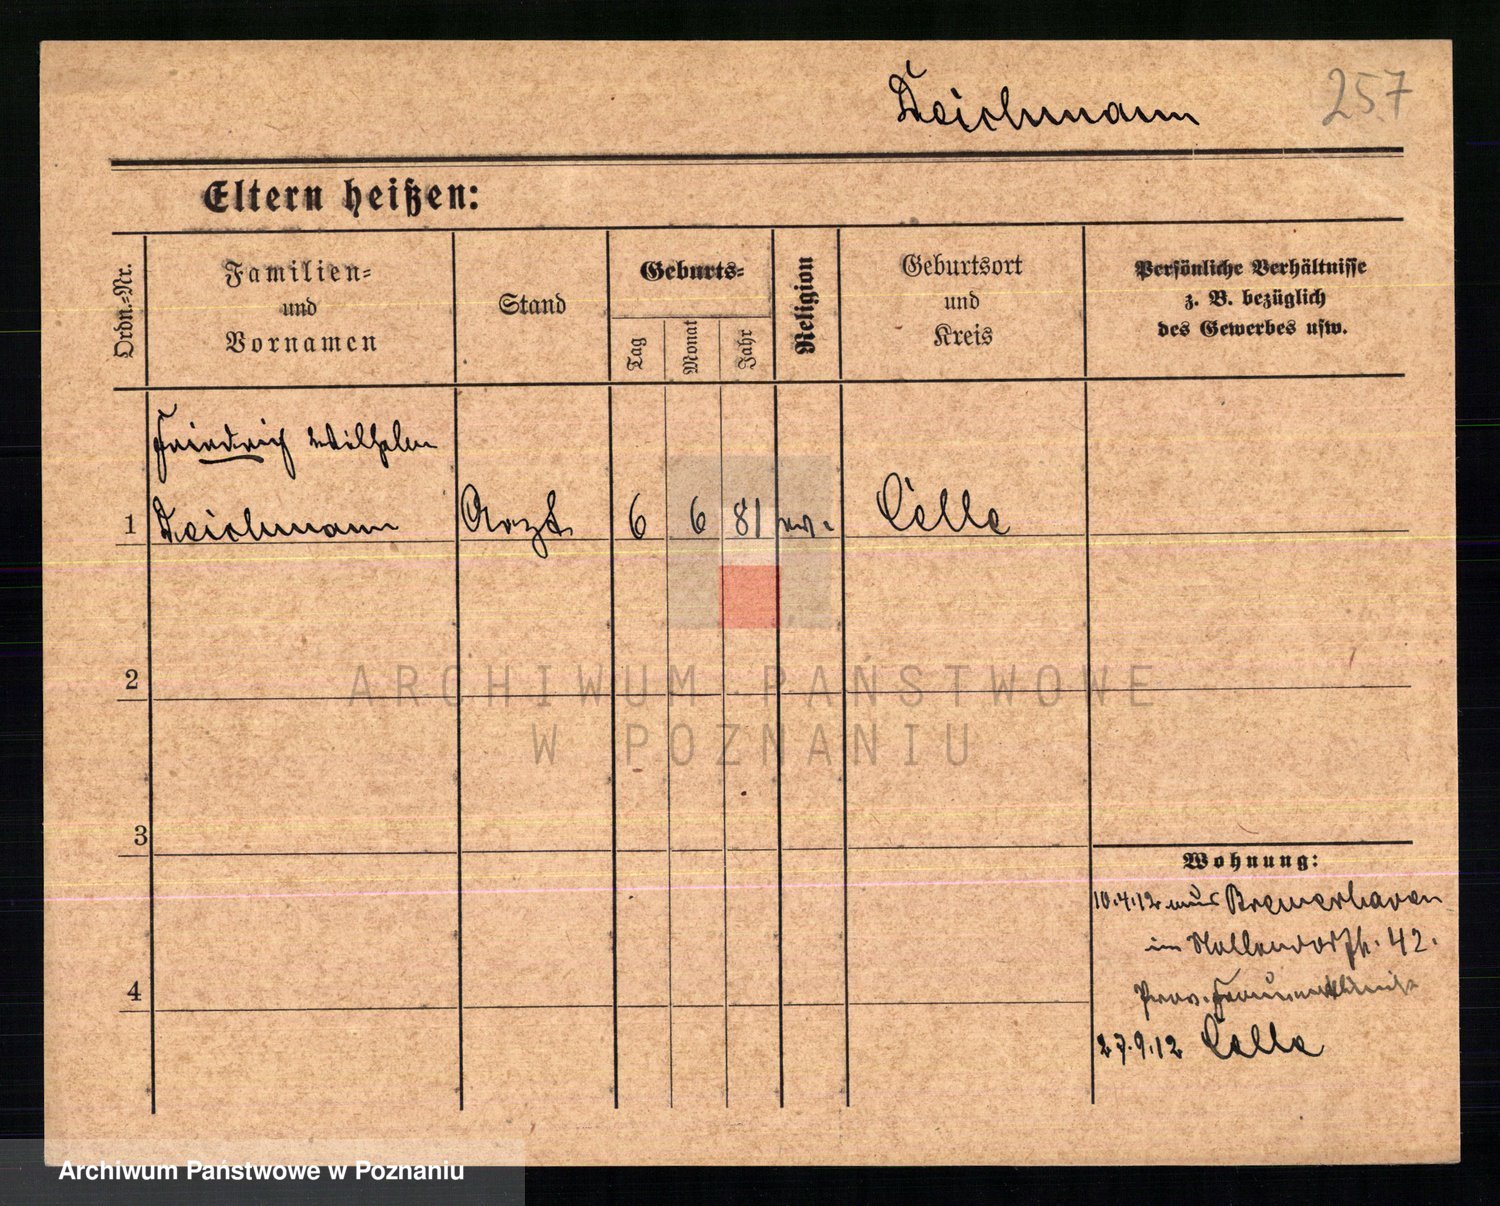 Deichmann
257
Eltern heißen:
Ordn.-Nr.
Familien-
und
Vornamen
Stand
Geburts-
Tag
Monat
Jahr
Religion
Geburtsort
und
Kreis
Persönliche Verhältnisse
z. B. bezüglich
des Gewerbes usw.
Friedrich Wilhelm
1 Deichmann Arzt 6 6 81 ev. Celle
2
3
4
Wohnung:
10.4.12 aus Bremerhaven
in 42.
Prov. Frauenklinik
27.9.12 Celle
ARCHIWUM PAŃSTWOWE
W POZNANIU
Archiwum Państwowe w Poznaniu